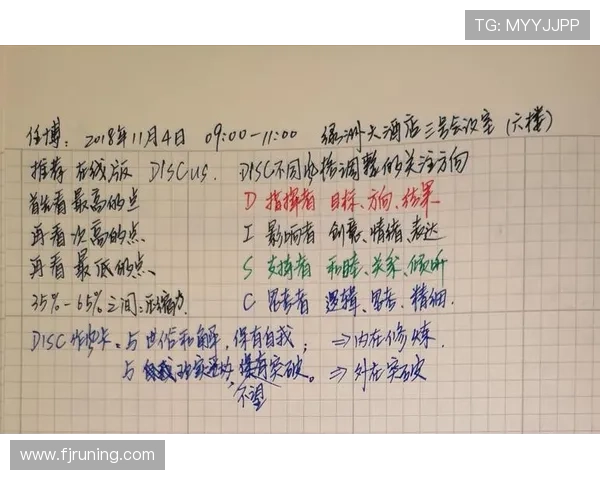 TG: MYYJJPP
任博: 2018年11月4日 09:00-11:00 绿洲大酒店三号会议室 (六楼)
推荐 在线版 DISCus. DISC不同风格调整的关注方向
首先看最高的点 D 指挥者 目标、方向、结果
再看次高的点 I 影响者 创意、情绪、表达
再看最低的点 S 支持者 和睦、关系、倾听
35%-65%之间:压缩 C 思考者 逻辑、思考、精细.
DISC 与世俗和解,保有自我; ⇒内在修炼.
与 突破。⇒外在突破
不望
www.fjruning.com